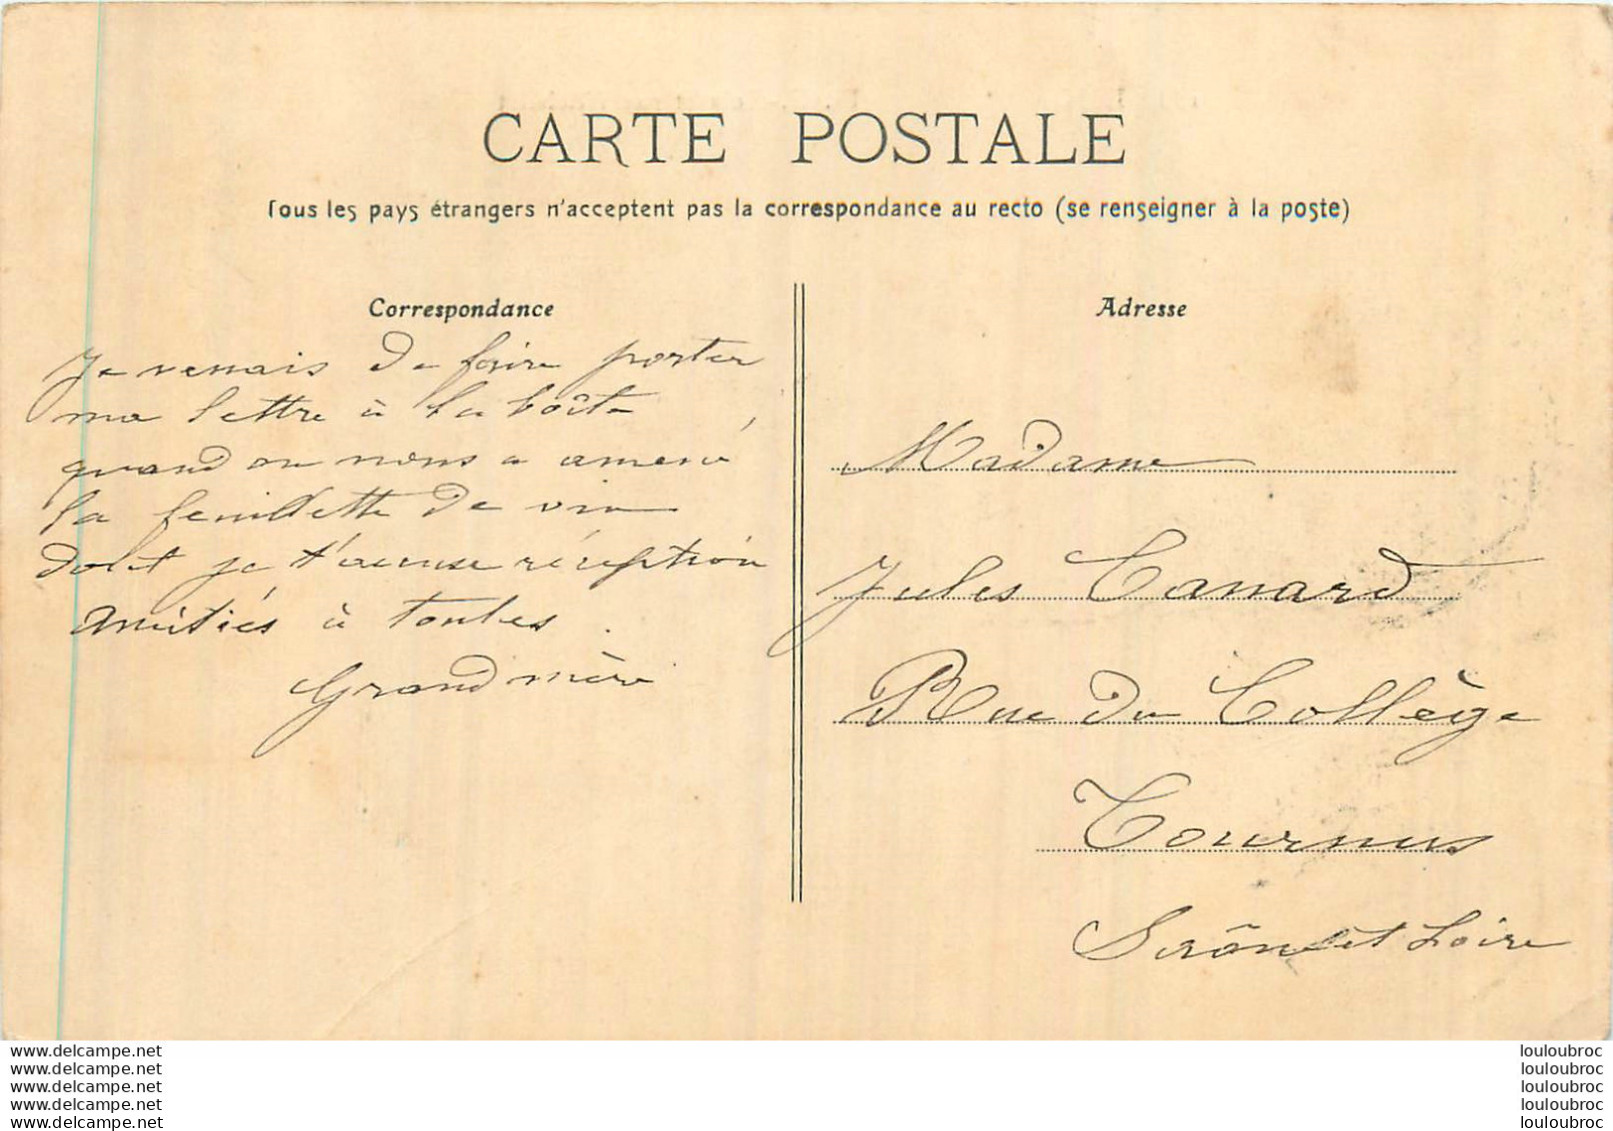 CARTE POSTALE
Tous les pays étrangers n'acceptent pas la correspondance au recto (se renseigner à la poste)
Correspondance
Je venais de faire porter
ma lettre à la boîte,
quand on nous a amené
la feuillette de vin
dont je t'accuse réception
Amitiés à toutes.
Grand mère
Adresse
Madame
Jules Canard
Rue du Collège
Tournus
Saône et Loire
www.delcampe.net
www.delcampe.net
www.delcampe.net
www.delcampe.net
www.delcampe.net
louloubroc
louloubroc
louloubroc
louloubroc
louloubroc